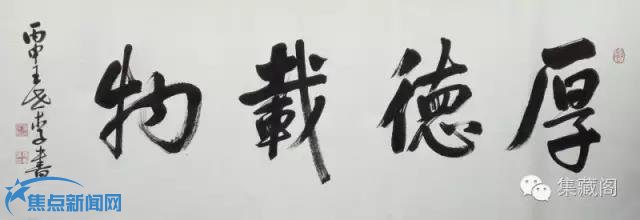 厚德載物
丙申王世孝書
焦点新闻网
集藏阁